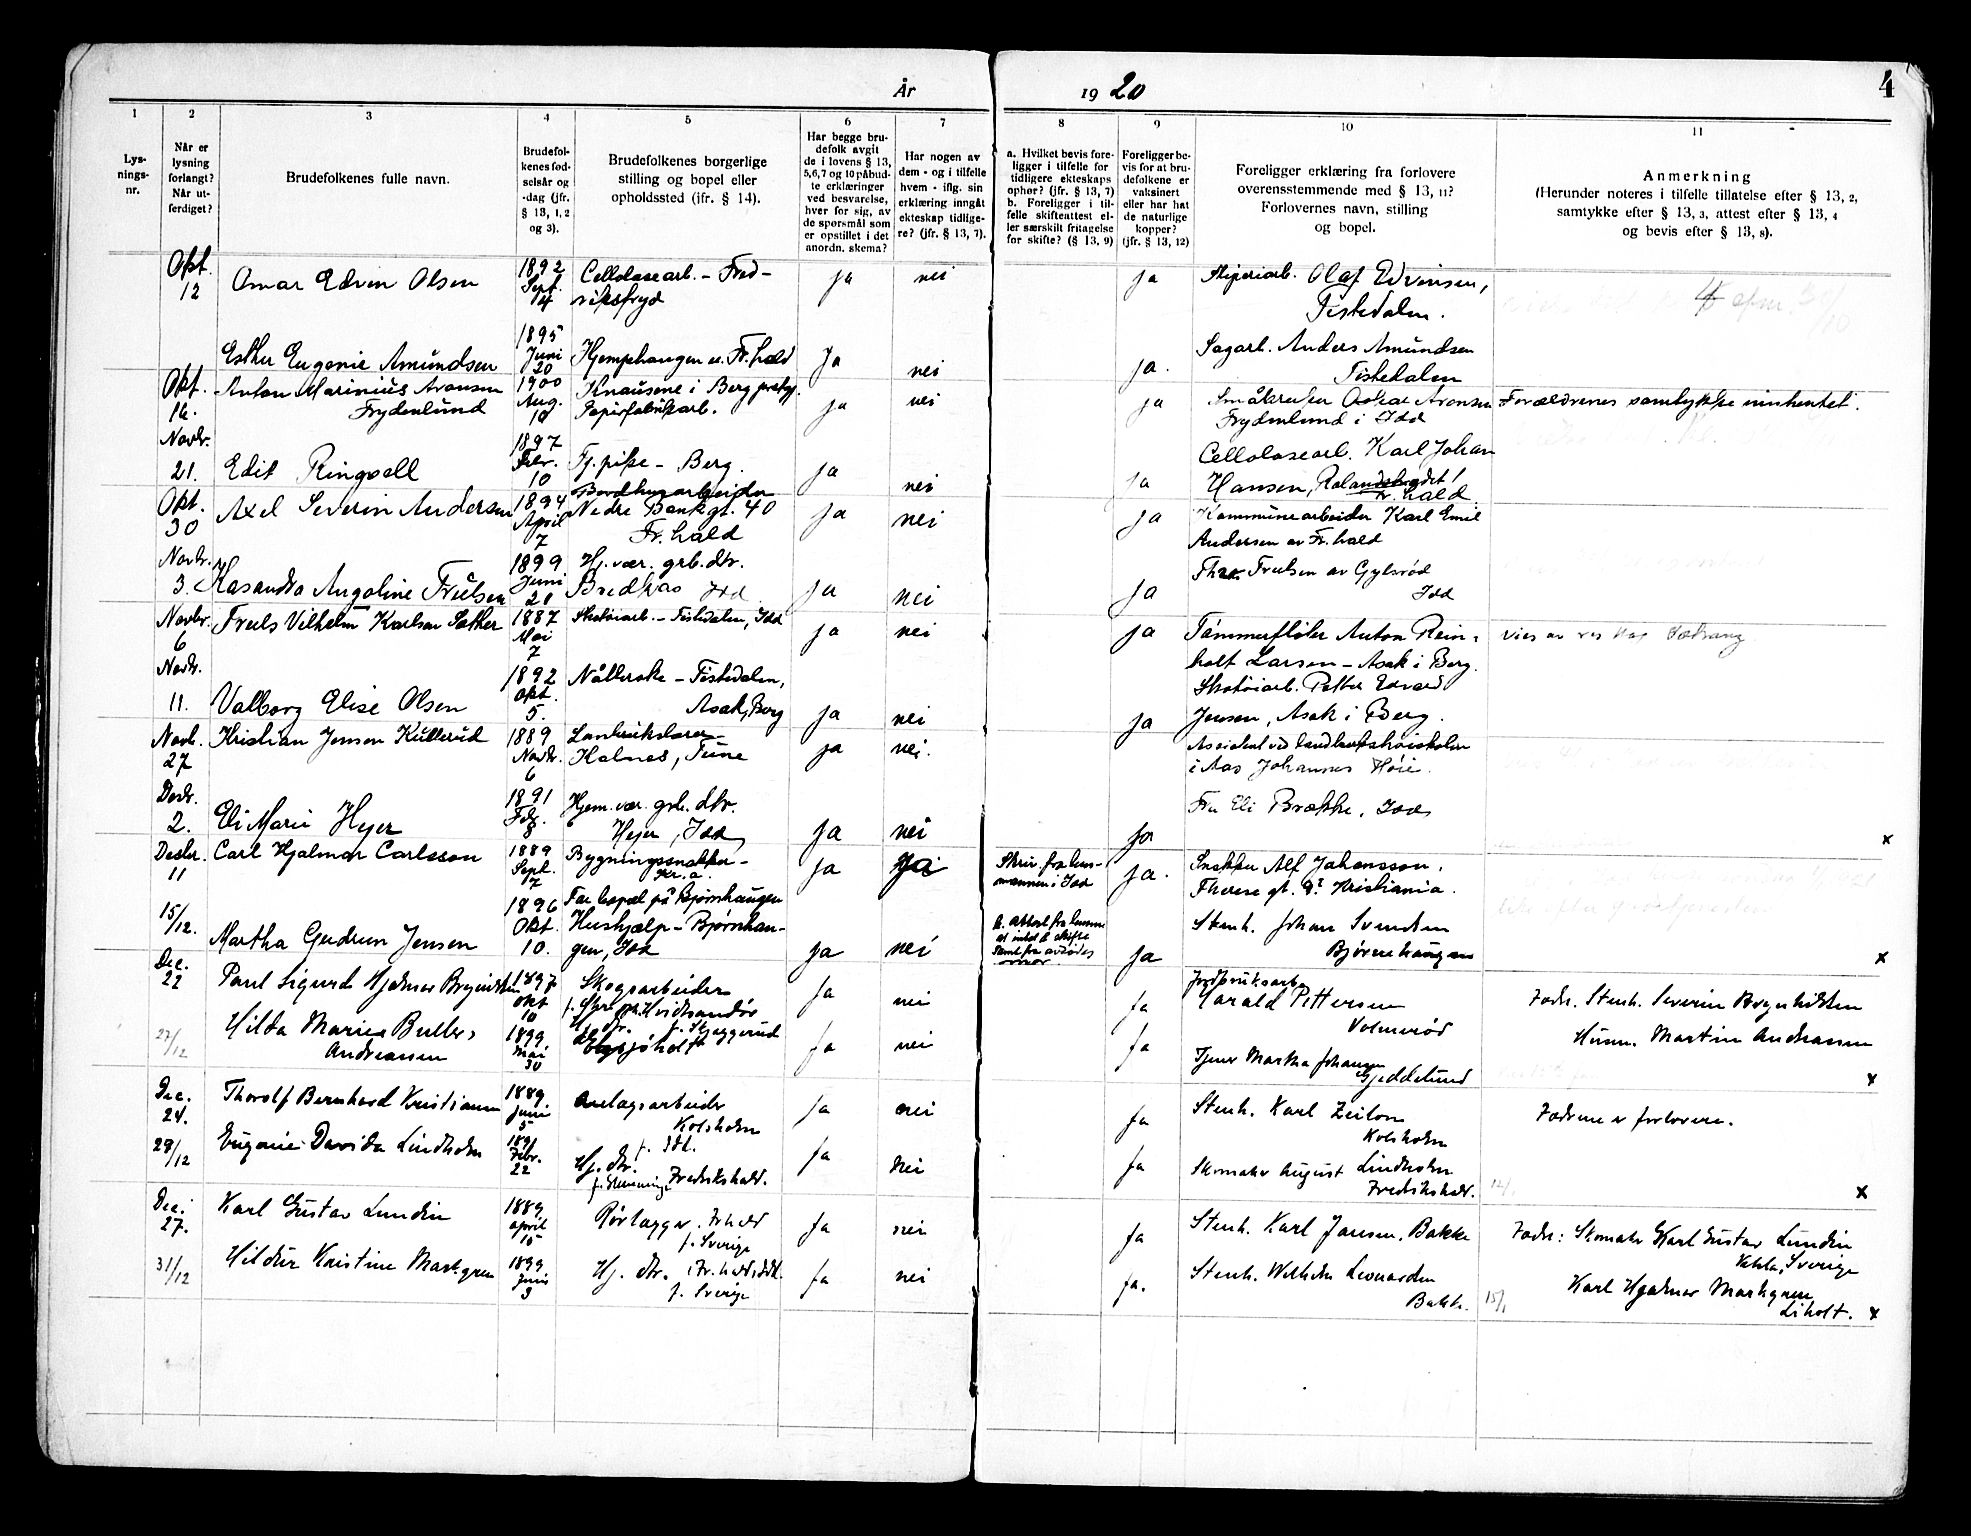 År
19 20
4
1
2
3
4
5
6
7
8
9
10
11
Lys-
nings-
nr.
Når er
lysning
forlangt?
Når ut-
ferdiget?
Brudefolkenes fulle navn.
Brudefol-
kenes fød-
selsår og
-dag (jfr.
§ 13, 1, 2
og 3).
Brudefolkenes borgerlige
stilling og bopel eller
opholdssted (jfr. § 14).
Har begge bru-
defolk avgit
de i lovens § 13,
5,6,7 og 10 påbud-
te erklæringer
ved besvarelse,
hver for sig, av
de spørsmål som
er opstillet i det
anordn. skema?
Har nogen av
dem - og i tilfelle
hvem - iflg. sin
erklæring inngåt
ekteskap tidlige-
re? (jfr. § 13, 7).
a. Hvilket bevis fore-
ligger i tilfelle for
tidligere ekteskaps
ophør? (jfr. § 13, 7)
b. Foreligger i til-
felle skifteattest el-
ler særskilt fritagelse
for skifte? (§ 13, 9)
Foreligger be-
vis for at bru-
defolkene er
vaksinert
eller har hat
de naturlige
kopper?
(jfr. § 13, 12)
Foreligger erklæring fra forlovere
overensstemmende med § 13, 11?
Forlovernes navn, stilling
og bopel.
Anmerkning
(Herunder noteres i tilfelle tillatelse efter § 13, 2,
samtykke efter § 13, 3, attest efter § 13, 4
og bevis efter § 13, 8).
Okt.
12
Omar Edvin Olsen
1892
Sept.
14
Cellolosearb. - Fred-
riksfryd
ja
nei
ja
Sliperiarb. Olaf Edvinsen,
Tistedalen.
Esther Eugenie Amundsen
1895
Juni
20
Hjemphaugen v. Fr.hald
Ja
nei
ja.
Sagarb. Anders Amundsen
Tistedalen
Okt.
16.
Anton Marinius Aronsen
Frydenlund
1900
Aug.
10
Knausene i Berg prstgj.
Papirfabrikarb.
ja
nei
ja
Oskar Aronsen
Frydenlund i Idd
Forældrenes samtykke innhentet.
Novbr.
21.
Edit Ringvall
1897
Febr.
10
Tj.pike - Berg.
ja
nei
ja
Cellolosearb. Karl Johan
Hansen,
Fr.hald
Okt.
30
Axel Severin Andersen
1894
April
7
Bordhusarbeider
Nedre Bankgt. 40
Fr.hald
ja
nei
ja
Kommunearbeider Karl Emil
Andersen av Fr.hald
Novbr.
3.
Kasandra Angoline Frülsen
1899
Juni
21
Hj. vær. grb. dtr.
Bredhas Idd
ja
nei
ja
Frulsen av Gylsrød
Idd
Novbr.
6
Truls Vilhelm Karlsen Sæther
1887
Mai
7
Skotøiarb. - Tistedalen, Idd
ja
nei
ja
Tømmerfløter Anton Rein-
holt Larsen - Asak i Berg.
vies av res kap
Novbr.
11.
Valborg Elise Olsen
1892
Okt.
5.
Nåtlerske - Tistedalen,
Asak, Berg
ja
nei
ja
Skotøiarb. Petter Edvard
Jensen, Asak i Berg.
Novb.
27
Kristian Jensen Kullerud
1889
Novbr.
6
Lanbrukslærer
Kalnes, Tune
ja
nei.
Assistent ved landbrukshøiskolen
i Aas Johannes Høie.
Desbr.
2.
Eli Marie Hejer
1891
Febr.
8
Hjem.vær. grb. dtr.
Hejer, Idd
ja
nei
ja
Fru Eli Brække, Idd
x
Desbr.
11
Carl Hjalmar Carlsson
1889
Sept.
7
Bygningssnekker -
Kr.a.
ja
Ja
Skriv. fra lens-
mannen i Idd
ja.
Snekker Alf Johansson,
Therese gt. Kristiania.
15/12.
Martha Gudrun Jensen
1896
Okt.
10.
Før bopæl på Bjørnhaugen
Hushjælp - Bjørnhau-
gen, Idd
ja
nei
b. attest fra lensm.
ja
Stenh. Johan Svendsen
Bjørnehaugen
x
Dec.
22
Paul Sigurd Hjalmar Brynildsen
1897
Okt
10
Skogsarbeider
ja
nei
ja
Jordbruksarb.
Harald Pettersen
Volmerød
Fædr. Stenh. Severin Brynildsen
27/12
Hilda Marie Buller,
Andreassen
1899
Mai
30
ja
nei
ja
Tjener Martha Johansen
Gjeddelund
Husm. Martin Andreassen
x
Dec.
24.
Thorolf Bernhard Kristiansen
1889
Juni
5
Anlagsarbeider
Kolsholm
f. Idd.
ja
nei
ja
Stenh. Karl Zeilon
Kolsholm
Fædrene er forlovere.
29/12
Eugenie Davida Lindholm
1891
Febr.
22
Hj. dtr.
Fredrikshald.
ja
nei
ja
Skomaker August Lindholm
Fredrikshald.
12/1
x
Dec.
27.
Karl Gustav Lundin
1889
April
15
Rørlægger. Fr.hald
f. Sverige
ja
nei
ja
Stenh. Karl Jansen, Bakke
Fædr: Skomaker Karl Gustav Lundin
Sverige
31/12
Hildur Kristine Markgren
1899
Juni
3
Hj. dtr. i Fr.hald, Idd.
f. Sverige
ja
nei
ja.
Stenh. Wilhelm Leonardsen
Bakk.
15/1
Karl Hjalmar Markgren
Liholt.
x